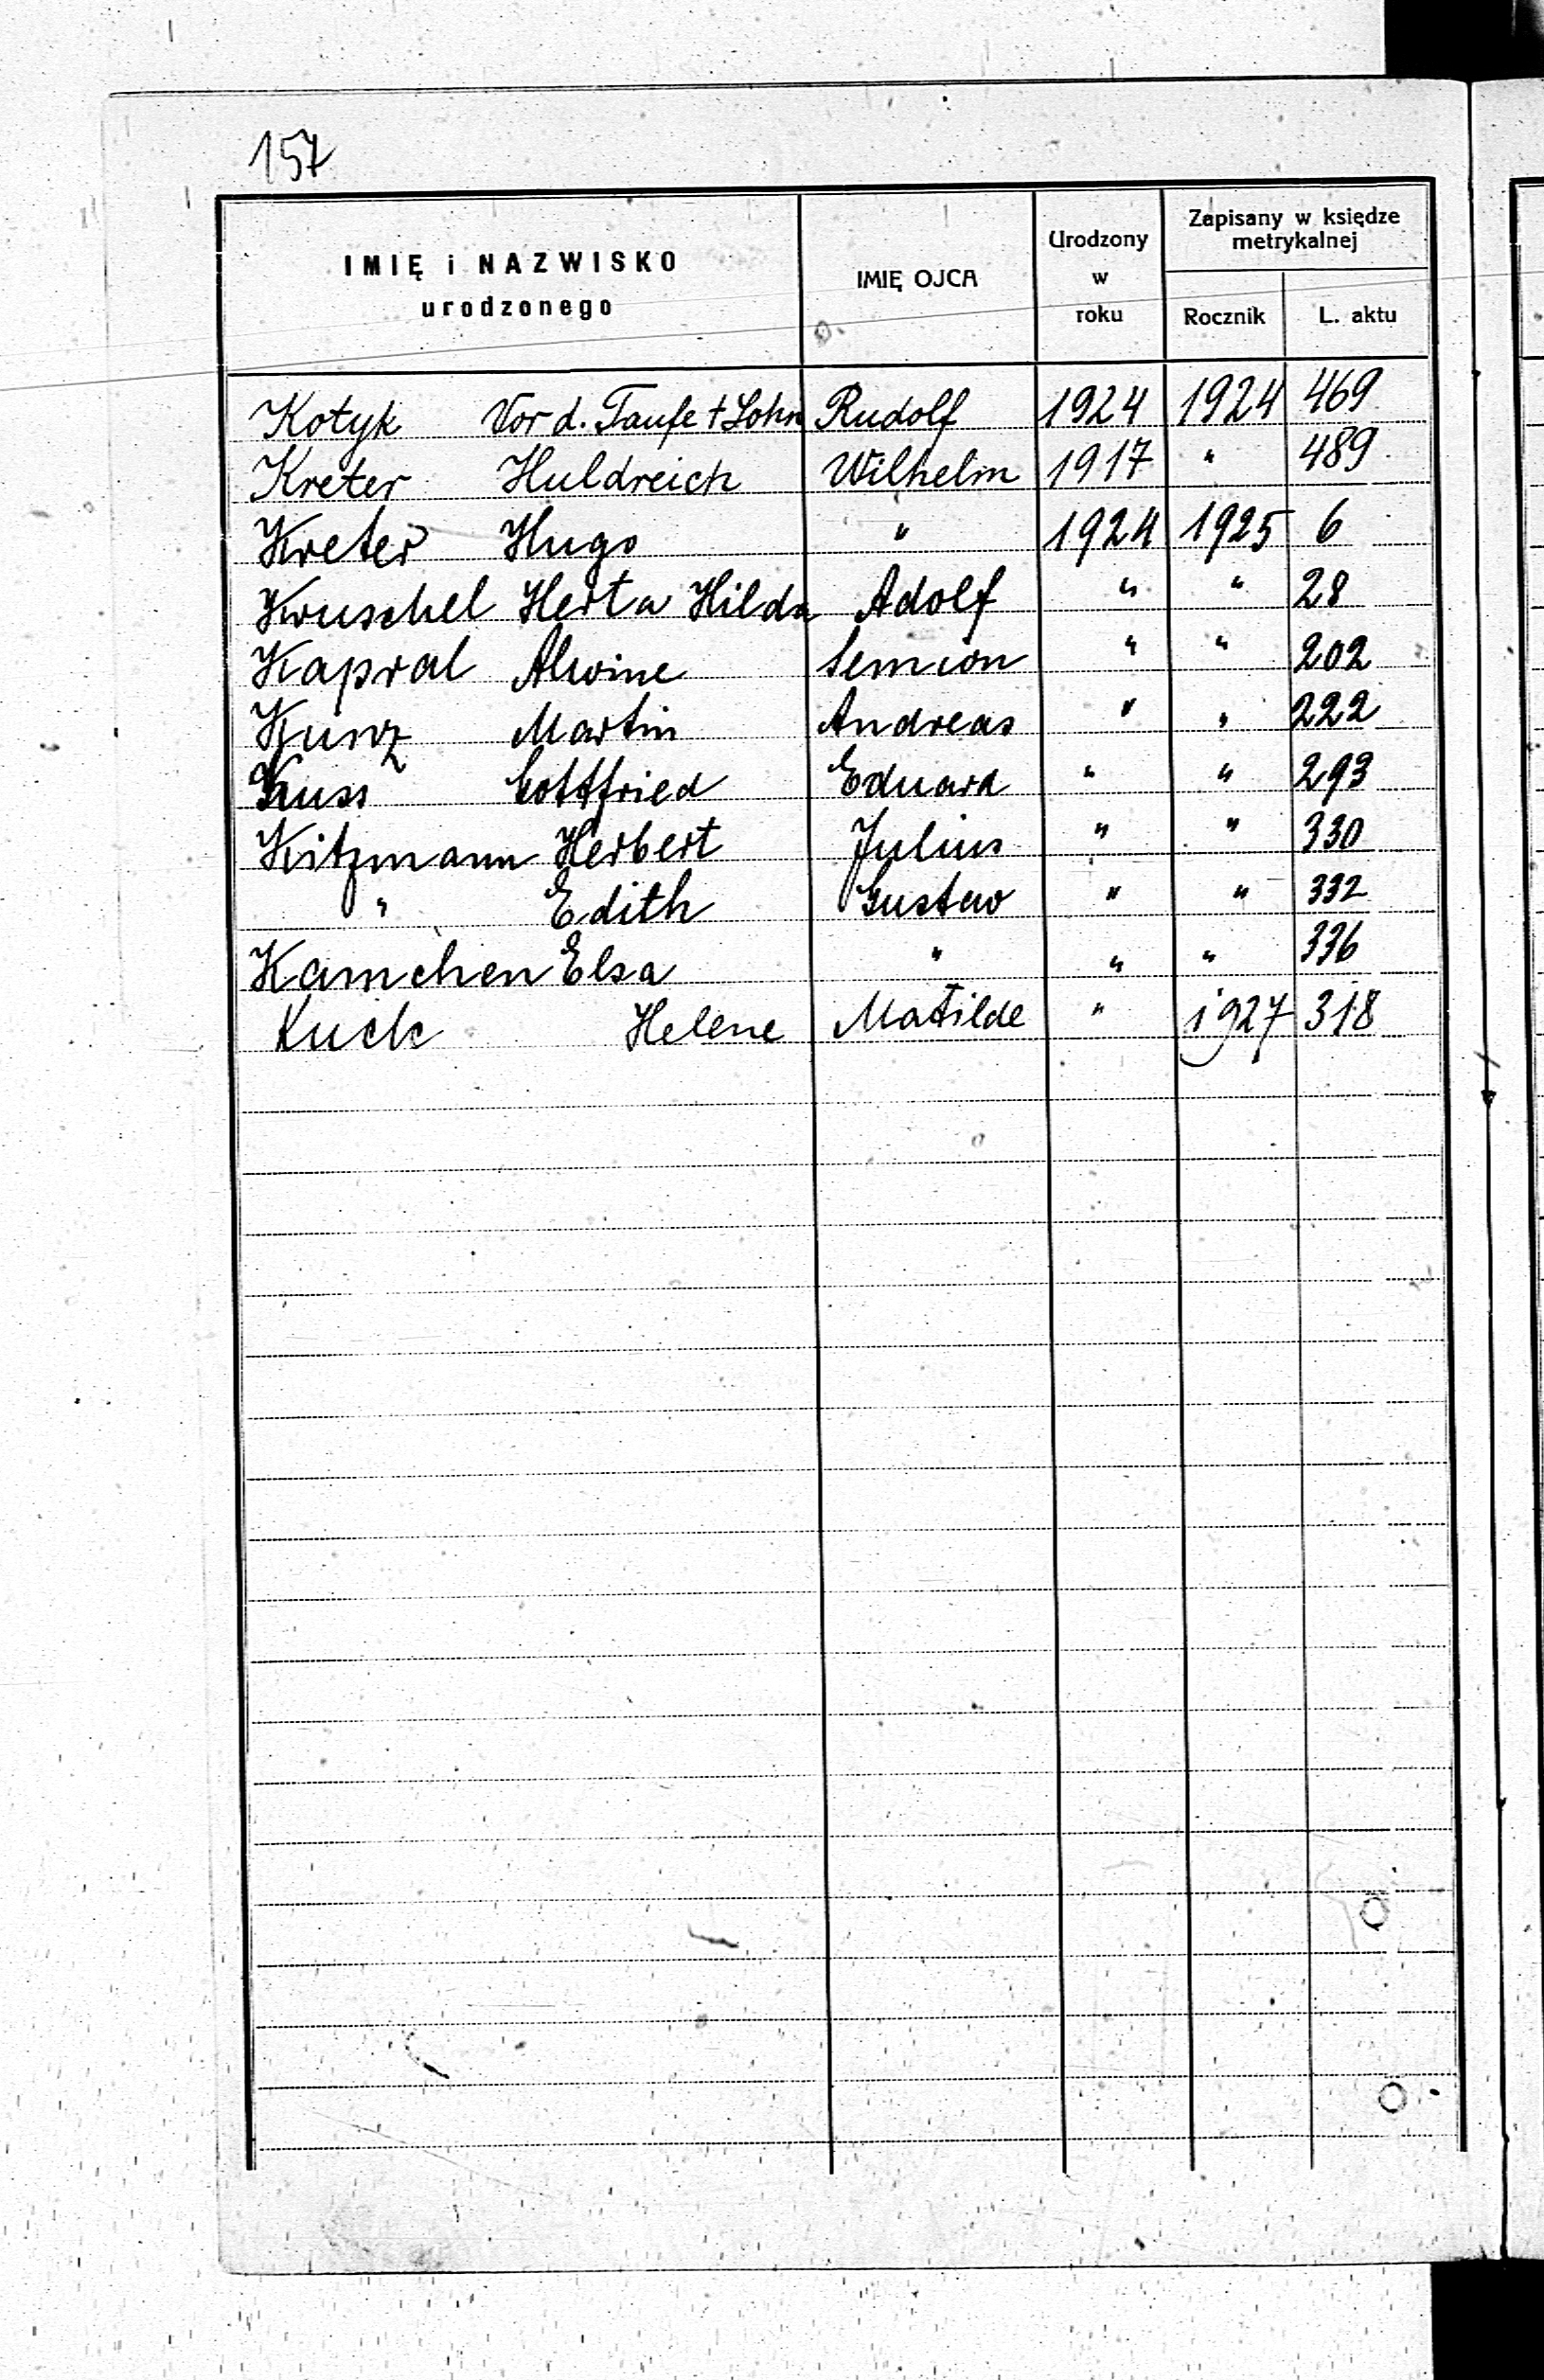 157
IMIĘ i NAZWISKO
urodzonego
IMIĘ OJCA
Urodzony
w
roku
Zapisany w księdze
metrykalnej
Rocznik L. aktu
Kotyk Vor d. Taufe † Sohn Rudolf 1924 1924 469
Kreter Huldreich Wilhelm 1917 " 489
Kreter Hugo " 1924 1925 6
Kruschel Herta Hilda Adolf " " 28
Kapral Alwine Semion " " 202
Kunz Martin Andreas " " 222
Kuss Gottfried Eduard " " 293
Kitzmann Herbert Julius " " 330
" Edith Gustaw " " 332
Kamchen Elsa " " " 336
Kuck Helene Matilde " 1927 318